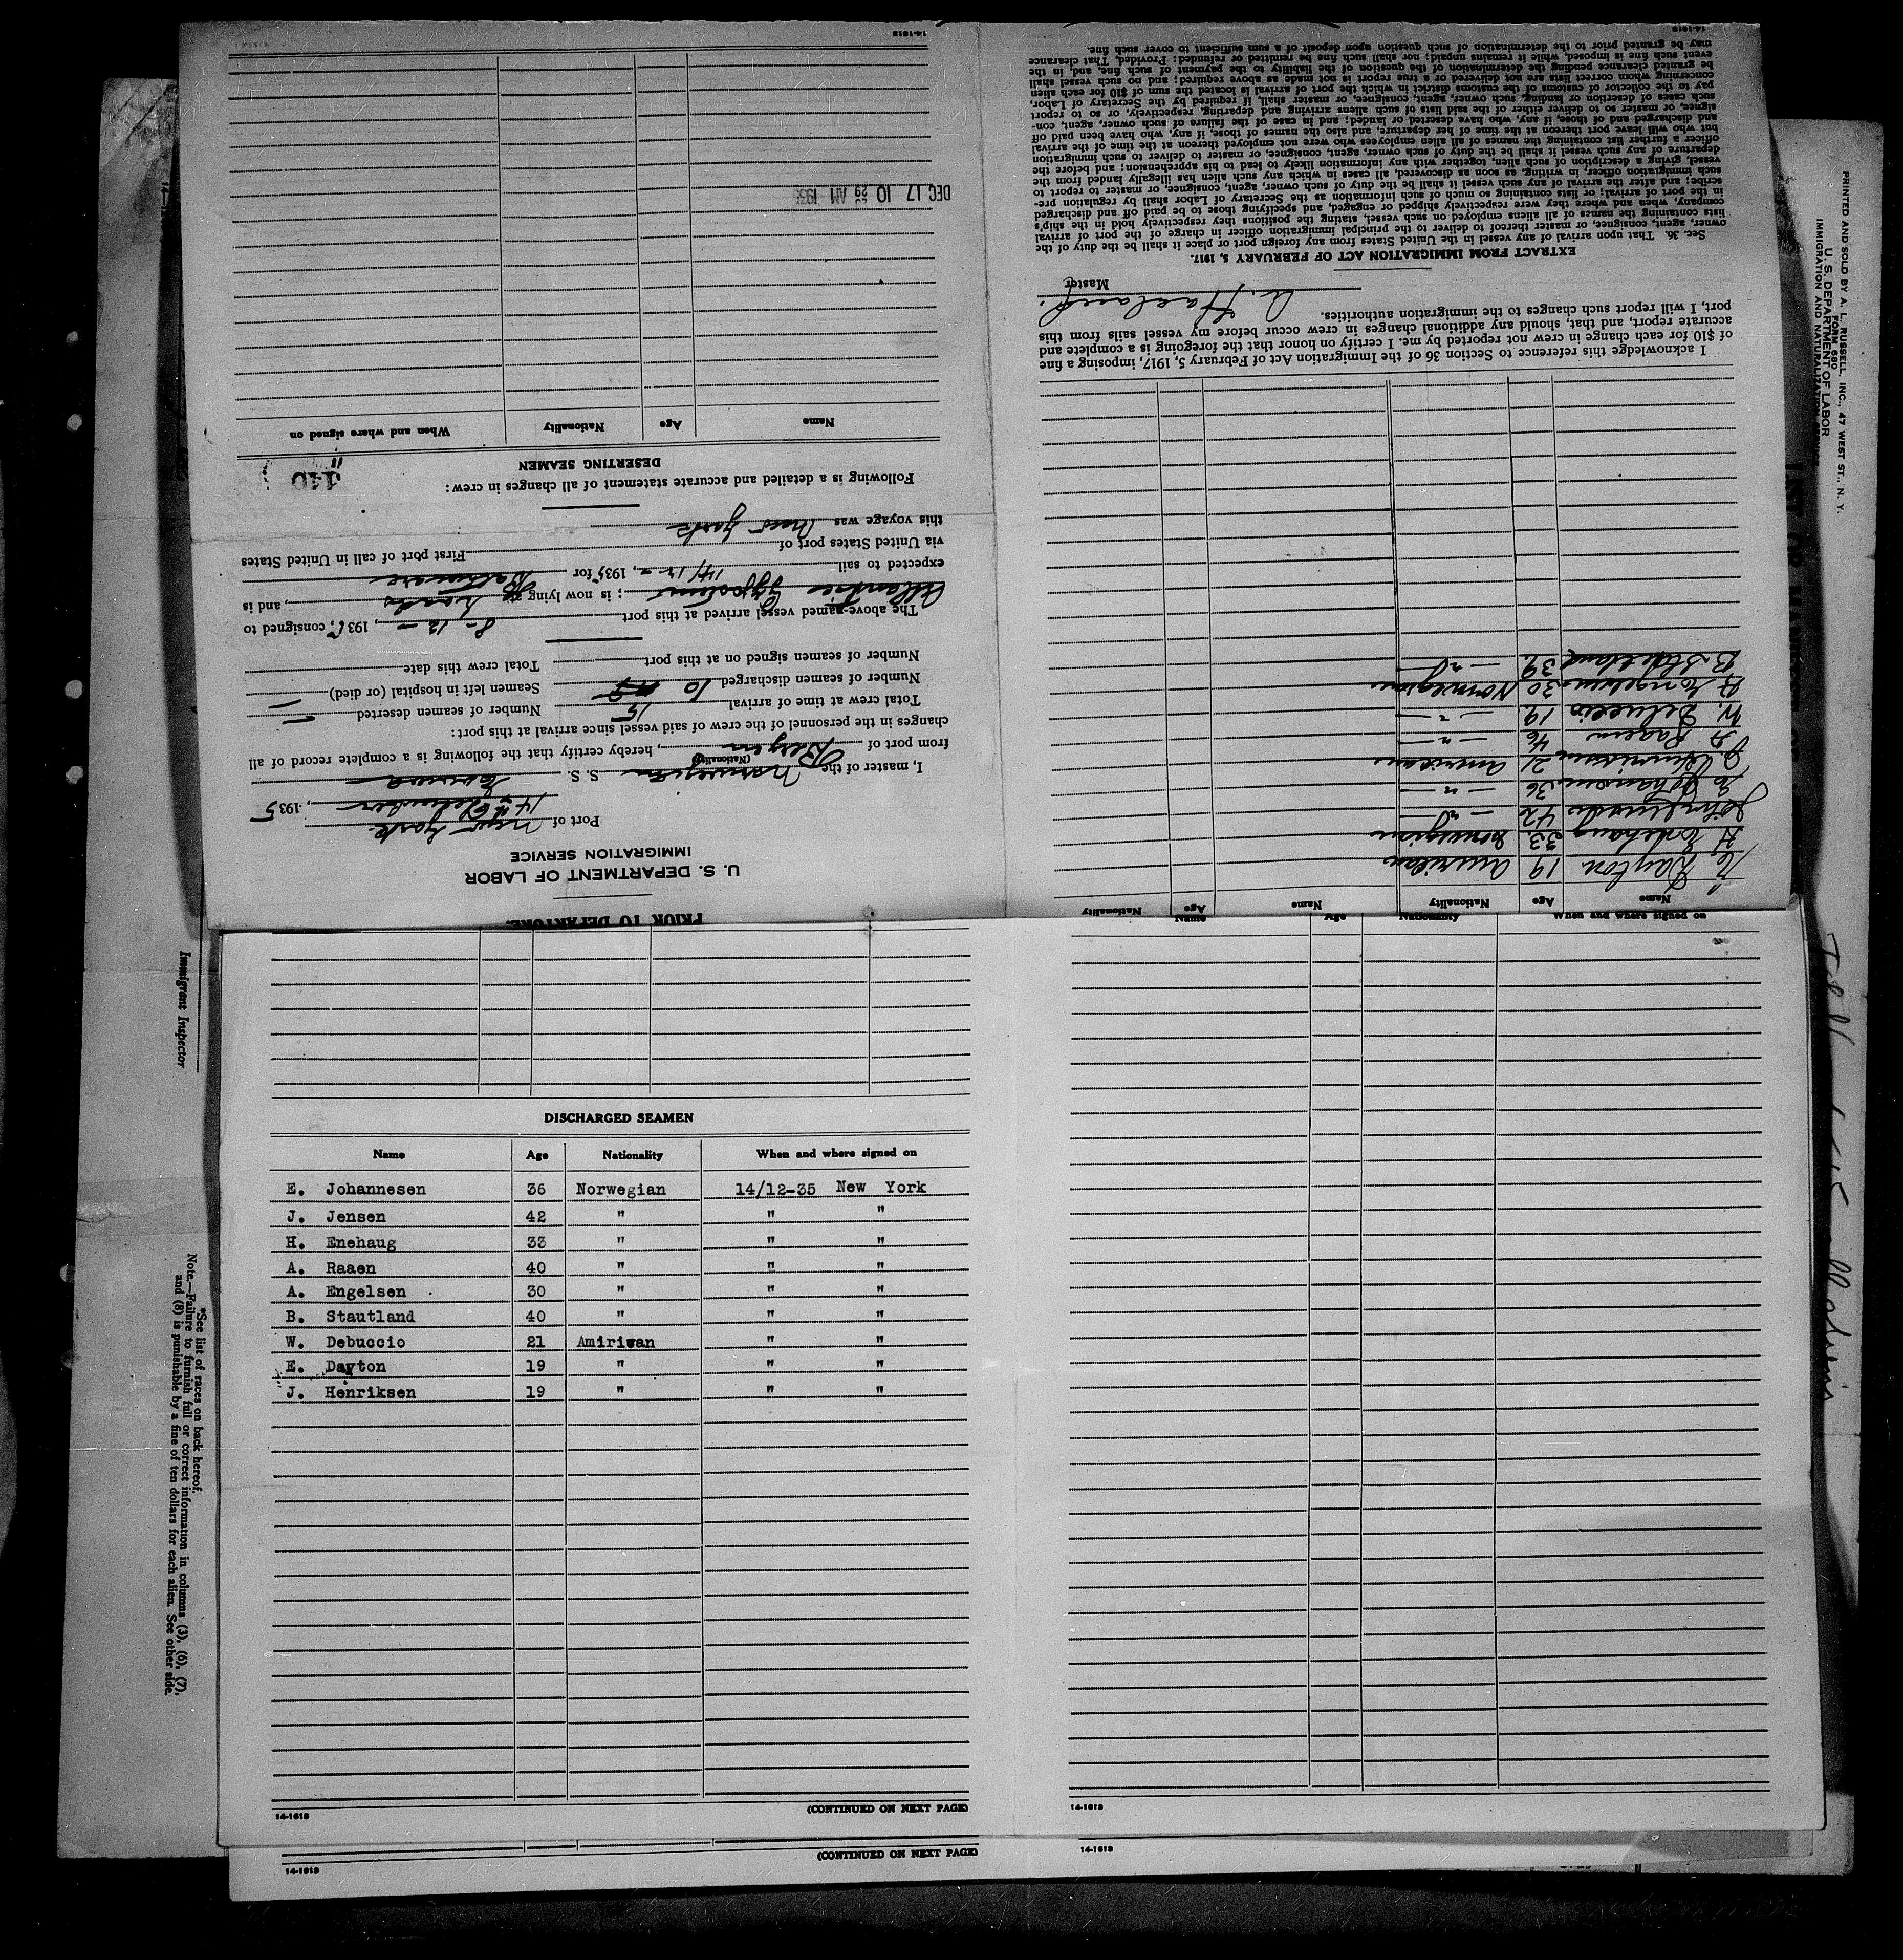 14-1613
PRIOR TO DEPARTURE.
U. S. DEPARTMENT OF LABOR
IMMIGRATION SERVICE
Port of New York
14th December, 1935
I, master of the Norwegian S. S.
(Nationality)
from port of Bergen, hereby certify that the following is a complete record of all
changes in the personnel of the crew of said vessel since arrival at this port:
Total crew at time of arrival 15 Number of seamen deserted —
Number of seamen discharged 10 Seamen left in hospital (or died) —
Number of seamen signed on at this port Total crew this date
The above-named vessel arrived at this port 8-12-, 1935, consigned to
; is now lying at, and is
expected to sail 14/12-, 1935 for Baltimore
via United States port of First port of call in United States
this voyage was New York
Following is a detailed and accurate statement of all changes in crew:
140
DESERTING SEAMEN
Name Age Nationality When and where signed on
DEC 17 10 29 AM 1935
14-1613
Name Age Nationality Name Age Nationality
E. Dayton 19 American
H. Enehaug 33. Norwegian
42 —"—
E. Johannesen 36 —"—
J. Henriksen 21 American
A. Raaen 46 —"—
W. Debuccio 19 —"—
A. Engelsen 30 Norwegian
B. Stautland 39. —"—
I acknowledge this reference to Section 36 of the Immigration Act of February 5, 1917, imposing a fine
of $10 for each change in crew not reported by me. I certify on honor that the foregoing is a complete and
accurate report, and that, should any additional changes in crew occur before my vessel sails from this
port, I will report such changes to the immigration authorities.
Master
EXTRACT FROM IMMIGRATION ACT OF FEBRUARY 5, 1917.
Sec. 36. That upon arrival of any vessel in the United States from any foreign port or place it shall be the duty of the
owner, agent, consignee, or master thereof to deliver to the principal immigration officer in charge of the port of arrival
lists containing the names of all aliens employed on such vessel, stating the positions they respectively hold in the ship's
company, when and where they were respectively shipped or engaged, and specifying those to be paid off and discharged
in the port of arrival; or lists containing so much of such information as the Secretary of Labor shall by regulation pre-
scribe; and after the arrival of any such vessel it shall be the duty of such owner, agent, consignee, or master to report to
such immigration officer, in writing, as soon as discovered, all cases in which any such alien has illegally landed from the
vessel, giving a description of such alien, together with any information likely to lead to his apprehension; and before the
departure of any such vessel it shall be the duty of such owner, agent, consignee, or master to deliver to such immigration
officer a further list containing the names of all alien employees who were not employed thereon at the time of the arrival
but who will leave port thereon at the time of her departure, and also the names of those, if any, who have been paid off
and discharged and of those, if any, who have deserted or landed; and in case of the failure of such owner, agent, con-
signee, or master so to deliver either of the said lists of such aliens arriving and departing, respectively, or so to report
such cases of desertion or landing, such owner, agent, consignee, or master shall, if required by the Secretary of Labor,
pay to the collector of customs of the customs district in which the port of arrival is located the sum of $10 for each alien
concerning whom correct lists are not delivered or a true report is not made as above required; and no such vessel shall
be granted clearance pending the determination of the question of the liability to the payment of such fine, and, in the
event such fine is imposed, while it remains unpaid; nor shall such fine be remitted or refunded: Provided, That clearance
may be granted prior to the determination of such question upon deposit of a sum sufficient to cover such fine.
14-1613
Name Age Nationality When and where signed on
DISCHARGED SEAMEN
Name Age Nationality When and where signed on
E. Johannesen 36 Norwegian 14/12-35 New York
J. Jensen 42 " " "
H. Enehaug 33 " " "
A. Raaen 40 " " "
A. Engelsen 30 " " "
B. Stautland 40 " " "
W. Debuccio 21 Amirican " "
E. Dayton 19 " " "
J. Henriksen 19 " " "
14-1613 (CONTINUED ON NEXT PAGE)
14-1613
14-1613 (CONTINUED ON NEXT PAGE)
14-1613
Immigrant Inspector
*See list of races on back hereof.
Note.—Failure to furnish full or correct information in columns (3), (6), (7),
and (8) is punishable by a fine of ten dollars for each alien. See other side.
PRINTED AND SOLD BY A. L. RUSSELL, INC., 47 WEST ST., N. Y.
FORM 680
U. S. DEPARTMENT OF LABOR
IMMIGRATION AND NATURALIZATION SERVICE